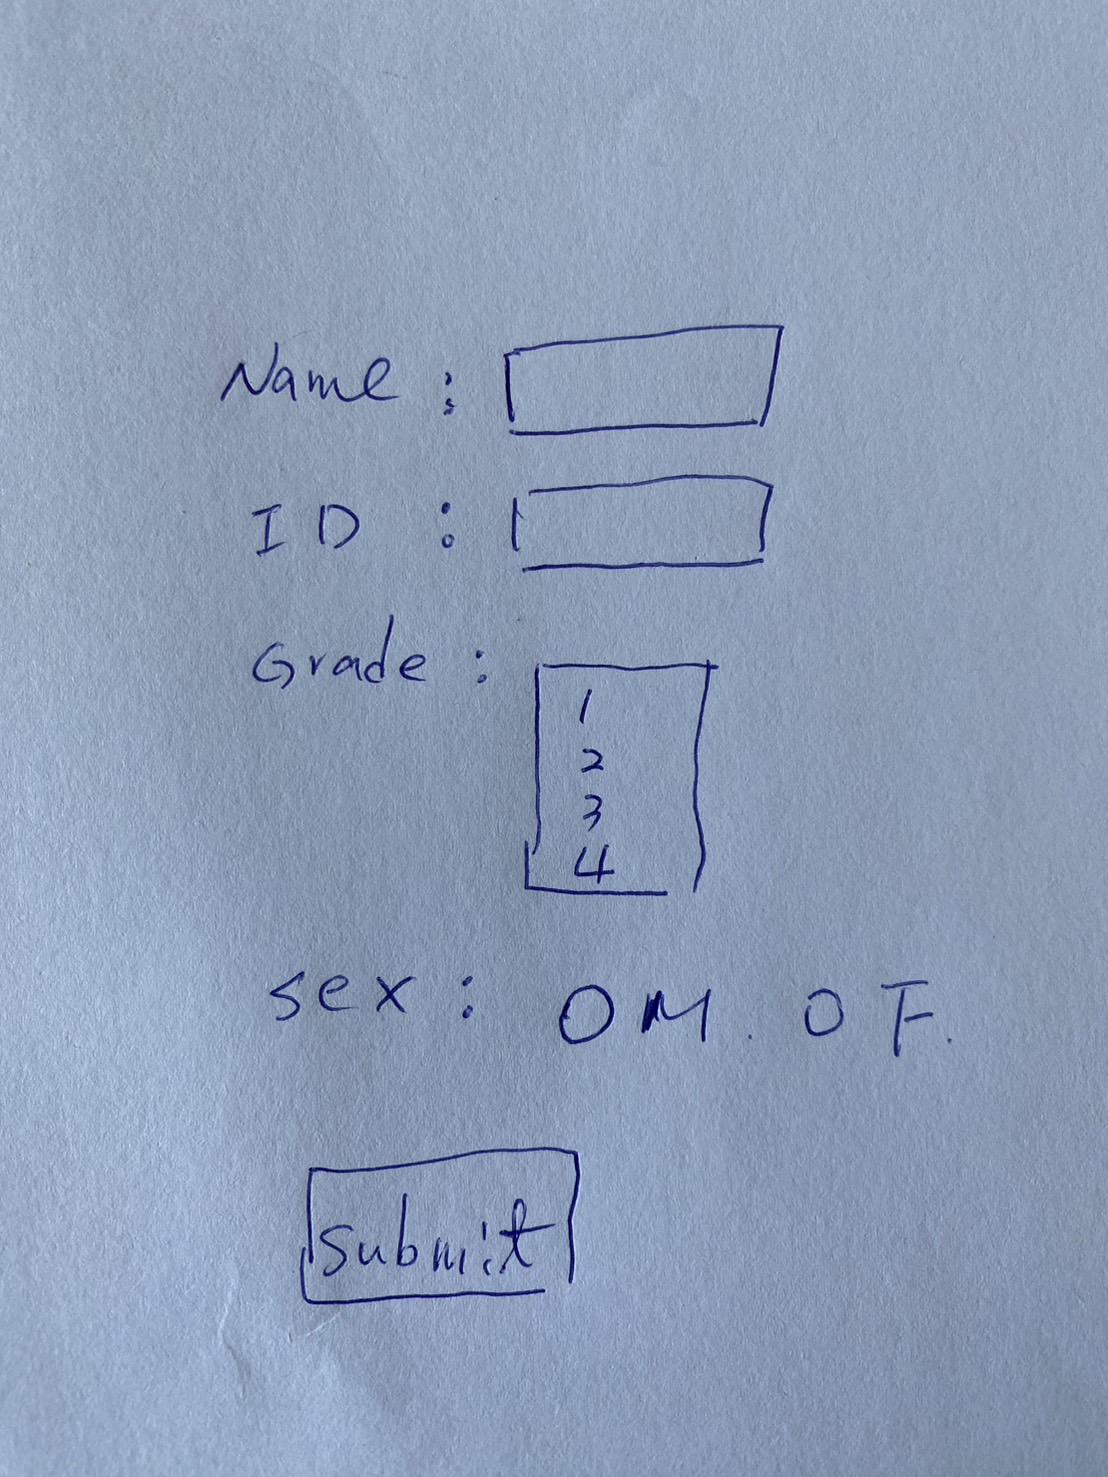 Name :
ID :
Grade :
1
2
3
4
sex : O M. O F.
submit